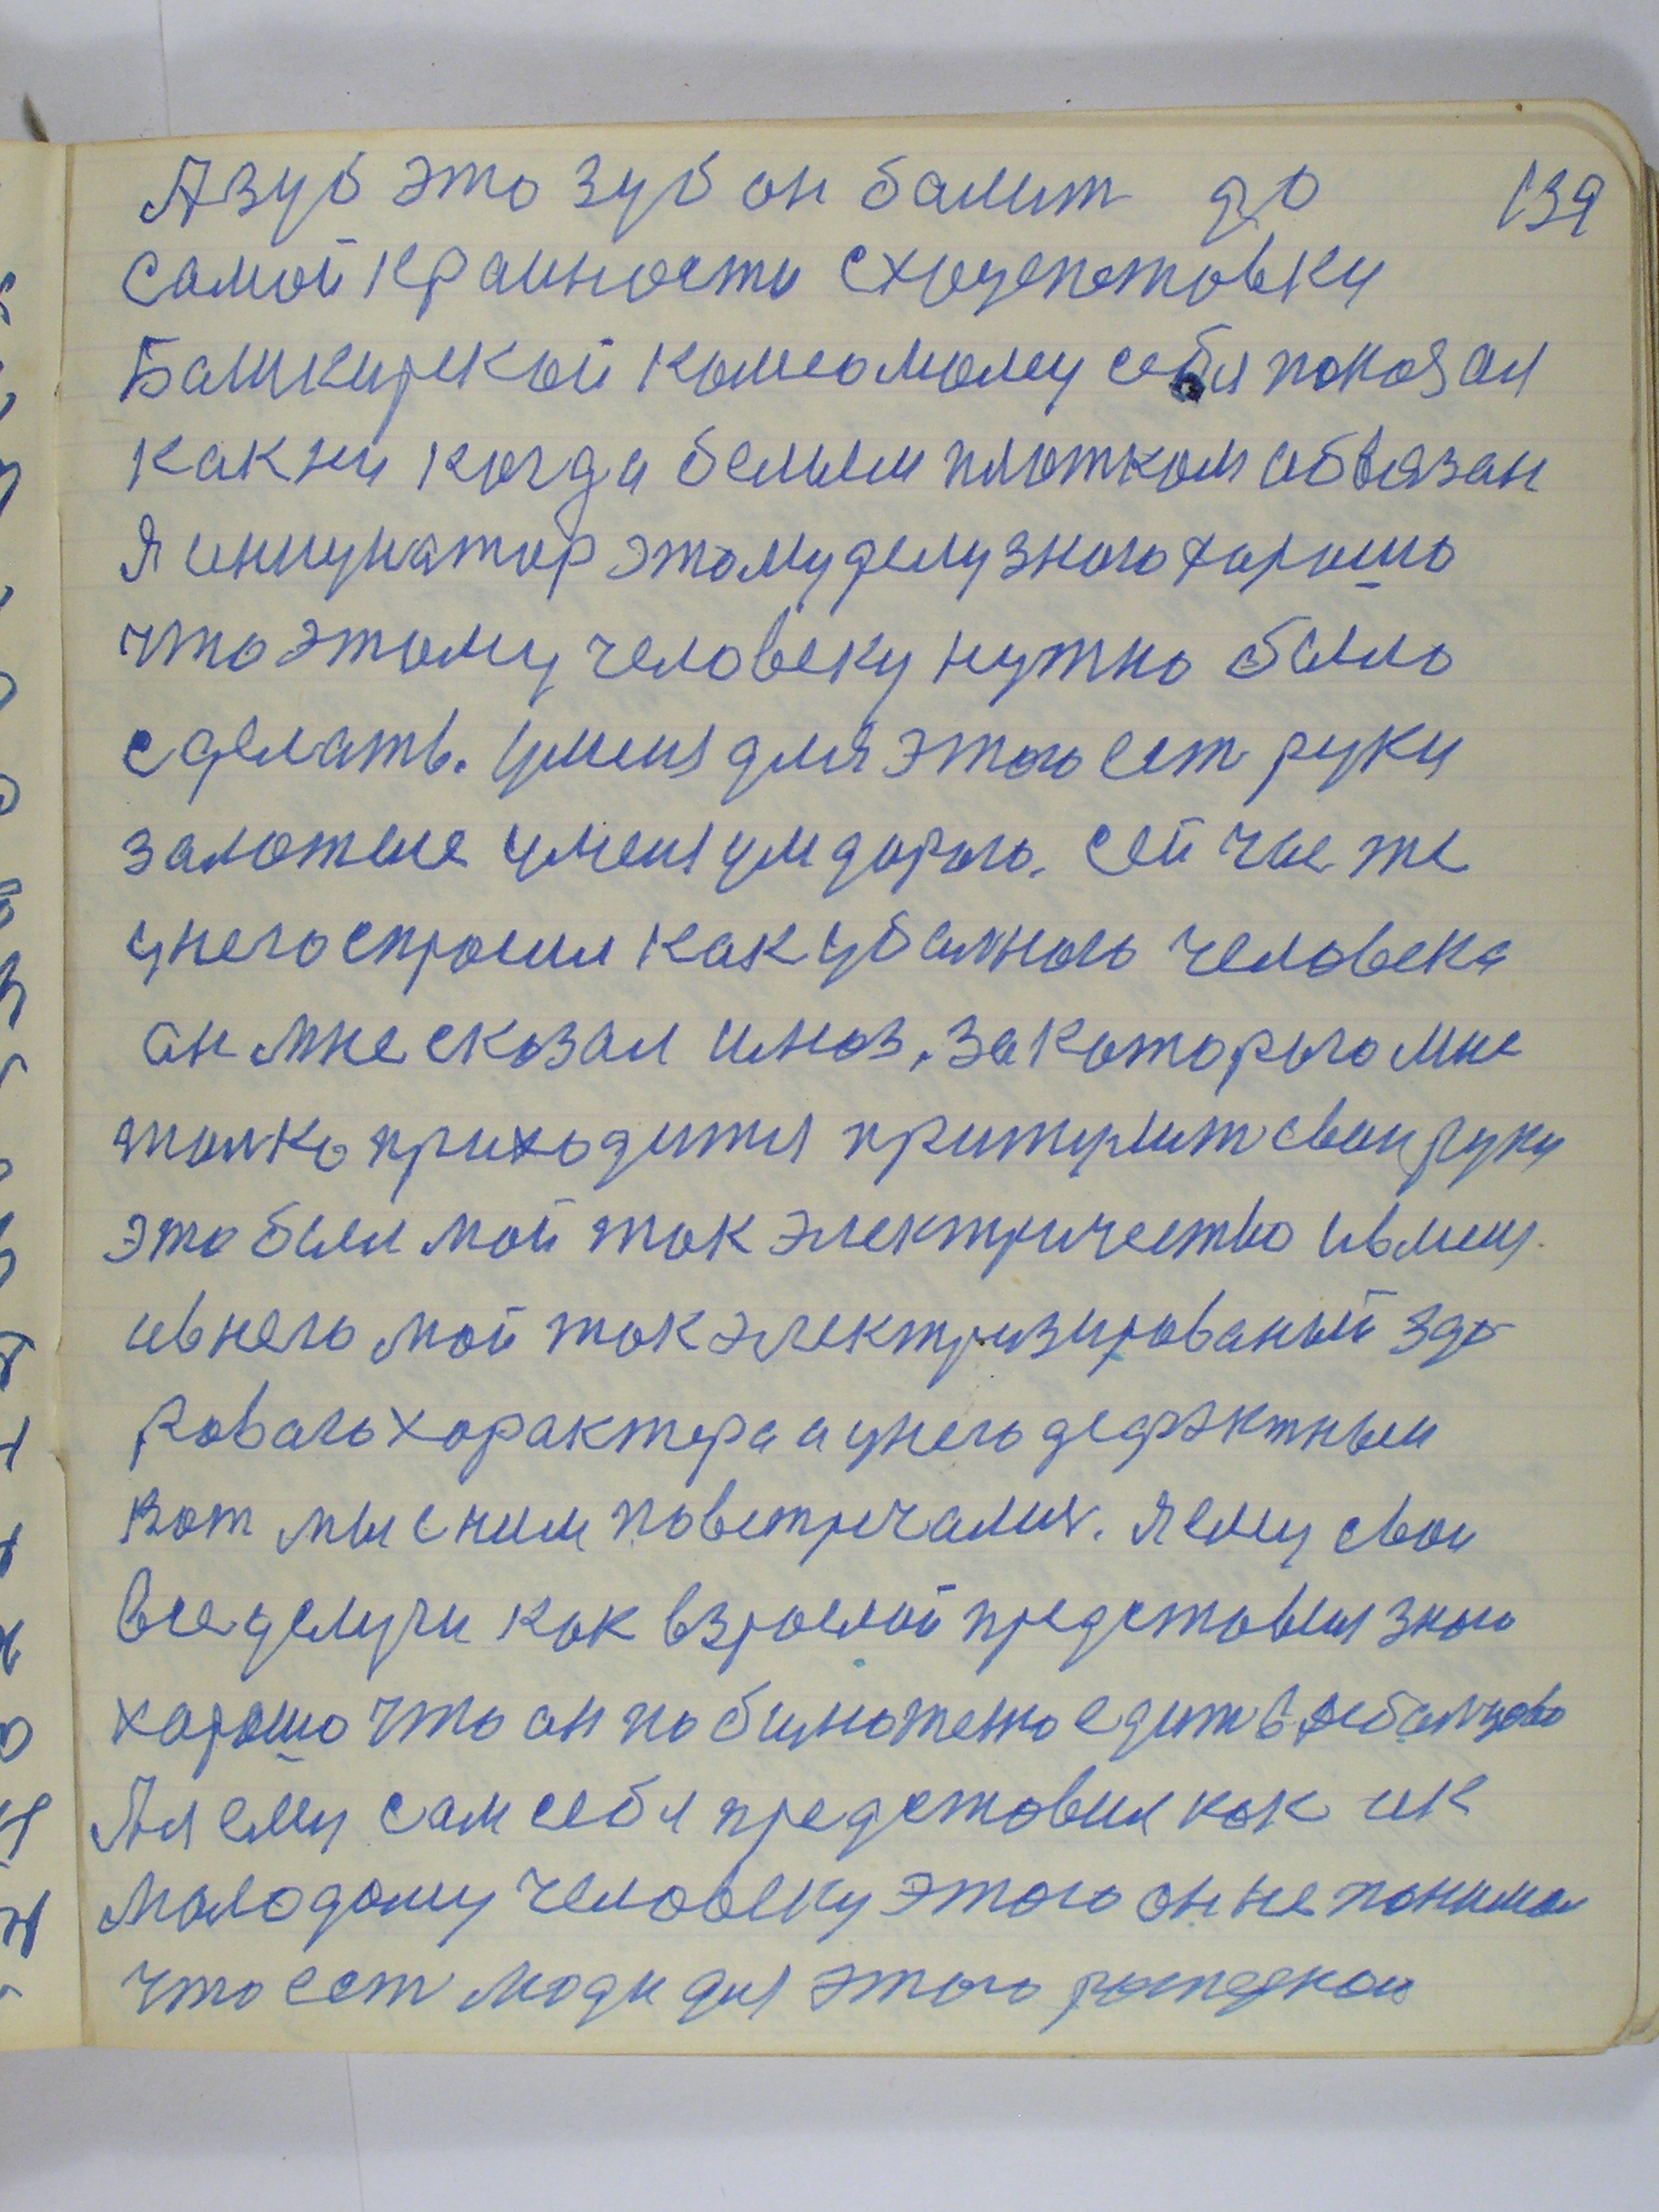 А зуб это зуб он балит до 139
самой крайности
Башкирской комсомолец себя показал
как ни когда белым платком обвязан
Я инициатор этому делу знаю харошо
что этому человеку нужно было
сделать. у меня для этого ест руки
залотые у меня ум дорого. сей час же
у него спросил как у балного человека
он мне сказал . за которого мне
толко приходится свои руки
это был мой ток электричество и в меня
и в него мой ток электризированый здо
рового характера а у него дефэктный
Вот мы с ним повстречалися. я ему свои
все делучи как взрослой представил знаю
харошо что он по едит в дебалцево
А я ему сам себя представил как и к
молодому человеку этого он не понимал
что ест люди для этого